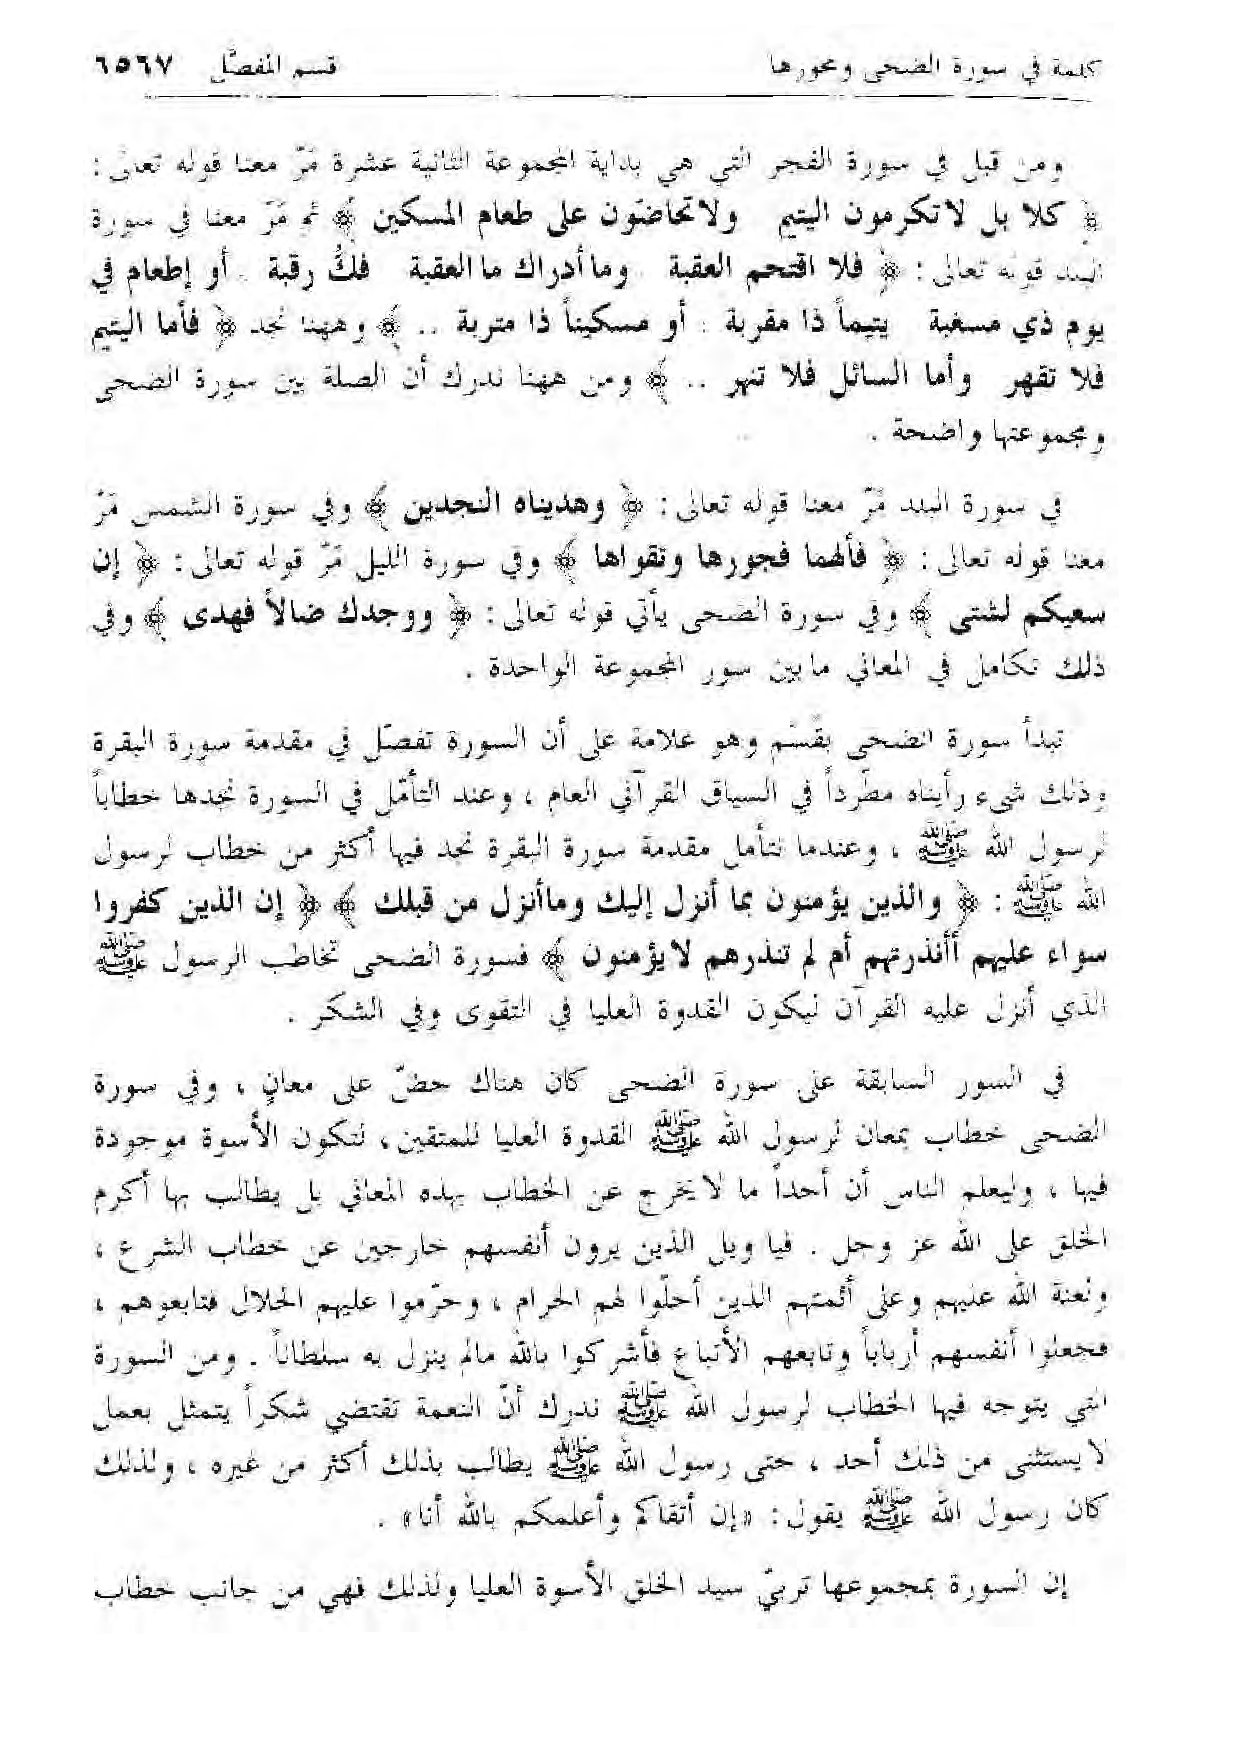 كلمة في سورة الضحى ومحورها قسم المفصّل ٦٥٦٧
ومن قبل في سورة الفجر التي هي بداية المجموعة الثانية عشرة مَرّ معنا قوله تعالى :
﴿ كلا بل لا تكرمون اليتيم ولا تحاضّون على طعام المسكين ﴾ ثم مَرّ معنا في سورة
البلد قوله تعالى : ﴿ فلا اقتحم العقبة وما أدراك ما العقبة فكُّ رقبة . أو إطعام في
يوم ذي مسغبة يتيماً ذا مقربة . أو مسكيناً ذا متربة .. ﴾ وههنا نجد ﴿ فأما اليتيم
فلا تقهر وأما السائل فلا تنهر .. ﴾ ومن ههنا ندرك أن الصلة بين سورة الضحى
ومجموعتها واضحة .
في سورة البلد مُرّ معنا قوله تعالى : ﴿ وهديناه النجدين ﴾ وفي سورة الشمس مَرّ
معنا قوله تعالى : ﴿ فألهمها فجورها وتقواها ﴾ وفي سورة الليل مَرّ قوله تعالى : ﴿ إن
سعيكم لشتى ﴾ وفي سورة الضحى يأتي قوله تعالى : ﴿ ووجدك ضالاً فهدى ﴾ وفي
ذلك تكامل في المعاني ما بين سور المجموعة الواحدة .
تبدأ سورة الضحى بقَسَم وهو علامة على أن السورة تفصّل في مقدمة سورة البقرة
وذلك شيء رأيناه مطّرداً في السياق القرآني العام ، وعند التأمّل في السورة نجدها خطاباً
لرسول الله ﷺ ، وعندما نتأمل مقدمة سورة البقرة نجد فيها أكثر من خطاب لرسول
الله ﷺ : ﴿ والذين يؤمنون بما أنزل إليك وما أنزل من قبلك ﴾ ﴿ إن الذين كفروا
سواء عليهم أأنذرتهم أم لم تنذرهم لا يؤمنون ﴾ فسورة الضحى تخاطب الرسول ﷺ
الذي أنزل عليه القرآن ليكون القدوة العليا في التقوى وفي الشكر .
في السور السابقة على سورة الضحى كان هناك حضّ على معانٍ ، وفي سورة
الضحى خطاب بمعان لرسول الله ﷺ القدوة العليا للمتقين ، لتكون الأسوة موجودة
فيها ، وليعلم الناس أن أحداً ما لا يخرج عن الخطاب بهذه المعاني بل يطالب بها أكرم
الخلق على الله عز وجل . فيا ويل الذين يرون أنفسهم خارجين عن خطاب الشرع ،
ولعنة الله عليهم وعلى أئمتهم الذين أحلّوا لهم الحرام ، وحرّموا عليهم الحلال فتابعوهم ،
فجعلوا أنفسهم أرباباً وتابعهم الأتباع فأشركوا بالله مالم ينزل به سلطاناً . ومن السورة
التي يتوجه فيها الخطاب لرسول الله ﷺ ندرك أنّ النعمة تقتضي شكراً يتمثل بعمل
لا يستثنى من ذلك أحد ، حتى رسول الله ﷺ يطالب بذلك أكثر من غيره ، ولذلك
كان رسول الله ﷺ يقول : «إن أتقاكم وأعلمكم بالله أنا» .
إن السورة بمجموعها تربيّ سيد الخلق الأسوة العليا ولذلك فهي من جانب خطاب